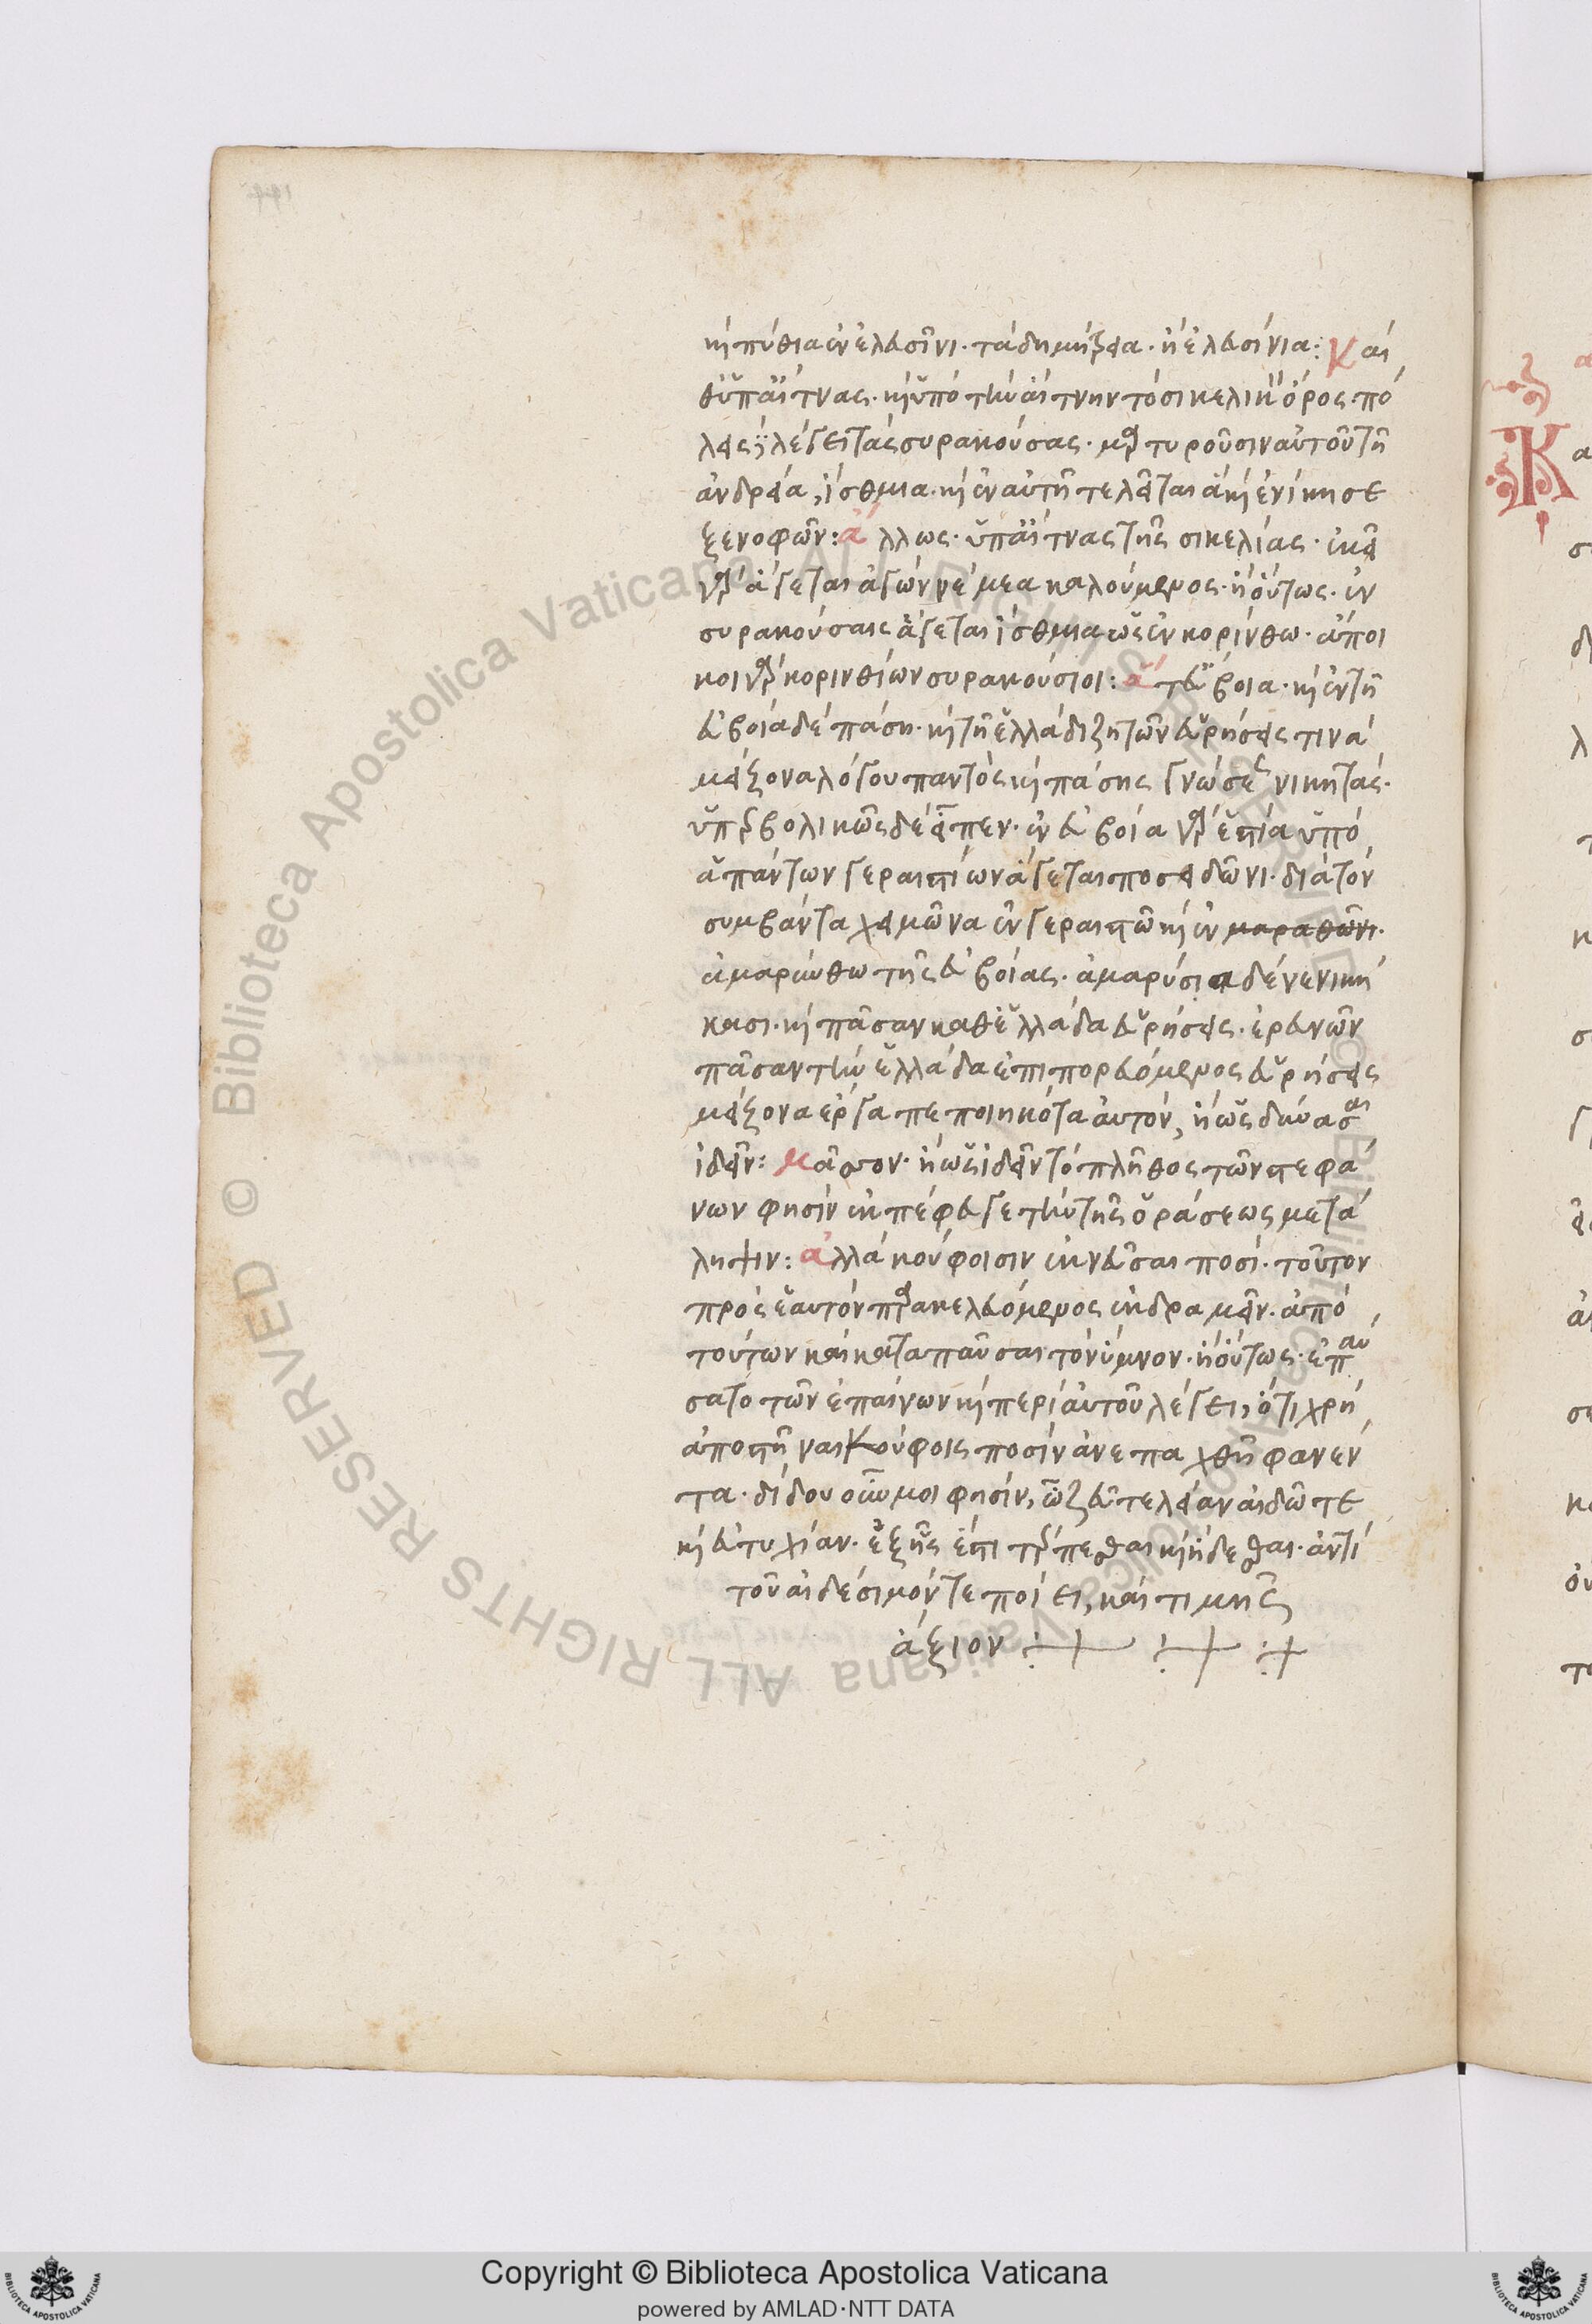 καὶ πύθια ἐν ἐλευσῖνι· τὰ δημήτρεια· ἢ ἐλευσίνια: Καὶ
θ' ὑπ' αἴτνας· καὶ ὑπὸ τὴν αἴτνην τὸ σικελικὸν ὄρος· πό
λεις
λέγει τὰς συρακούσας· μαρτυροῦσιν αὐτοῦ τῇ
ἀνδρεία, ἴσθμια· καὶ ἐν αὐτῇ τελεῖται ἃ καὶ ἐνίκησε
ξενοφῶν: ἄλλως· ὑπ' αἴτνας τῆς σικελίας· ἐκεῖ
γὰρ ἄγεται ἀγὼν νέμεα καλούμενος· ἢ οὕτως· ἐν
συρακούσαις ἄγεται ἴσθμια ὡς ἐν κορίνθω· ἄποι
κοι γὰρ κορινθίων συρακούσιοι: ἅ τ' εὔβοια· καὶ ἐν τῇ
εὐβοία δὲ πάση· καὶ τῇ ἑλλάδι ζητῶν εὑρήσεις τινὰ
μείζονα λόγου παντὸς καὶ πάσης γνώσεως νικητάς·
ὑπερβολικῶς δὲ εἶπεν· ἐν εὐβοία γὰρ
ὑπὸ
ἁπάντων γεραιστίων ἄγεται ποσειδῶνι· διὰ τὸν
συμβάντα χειμῶνα ἐν γεραιστῶ καὶ ἐν μαραθῶνι·
ἀμαρύνθω τῆς εὐβοίας· ἀμαρύσια δὲ νενική
κασι· καὶ πᾶσαν καθ' ἑλλάδα εὑρήσεις· ἐρευνῶν
πᾶσαν τὴν ἑλλάδα ἐπιπορευόμενος εὑρήσεις
μείζονα ἔργα πεποιηκότα αὐτόν, ἢ ὡς δύνασαι
ἰδεῖν: μάσσον· ἢ ὡς ἰδεῖν τὸ πλῆθος τῶν στεφά
νων φησὶν ἐκπέφευγε τὴν τῆς ὁράσεως μετά
ληψιν: ἀλλὰ κούφοισιν ἐκνεῦσαι ποσί· τοῦτον
πρὸς ἑαυτὸν παρακελευόμενος ἐκδραμεῖν· ἀπὸ
τούτων καὶ καταπαῦσαι τὸν ὕμνον· ἢ οὕτως· ἐπαύ
σατο τῶν ἐπαίνων καὶ περὶ αὐτοῦ λέγει, ὅτι χρὴ
ἀποστῆναι κούφοις ποσὶν ἀνεπαχθῆ φανέν
τα· δίδου οὖν μοι φησίν, ὦ ζεῦ τελείαν αἰδῶ τε
καὶ εὐτυχίαν· ἑξῆς ἐστι τέρπεσθαι καὶ ἥδεσθαι· ἀντὶ
τοῦ αἰδέσιμόν τε ποίει, καὶ τιμῆς
ἄξιον
Copyright © Biblioteca Apostolica Vaticana
powered by AMLAD·NTT DATA